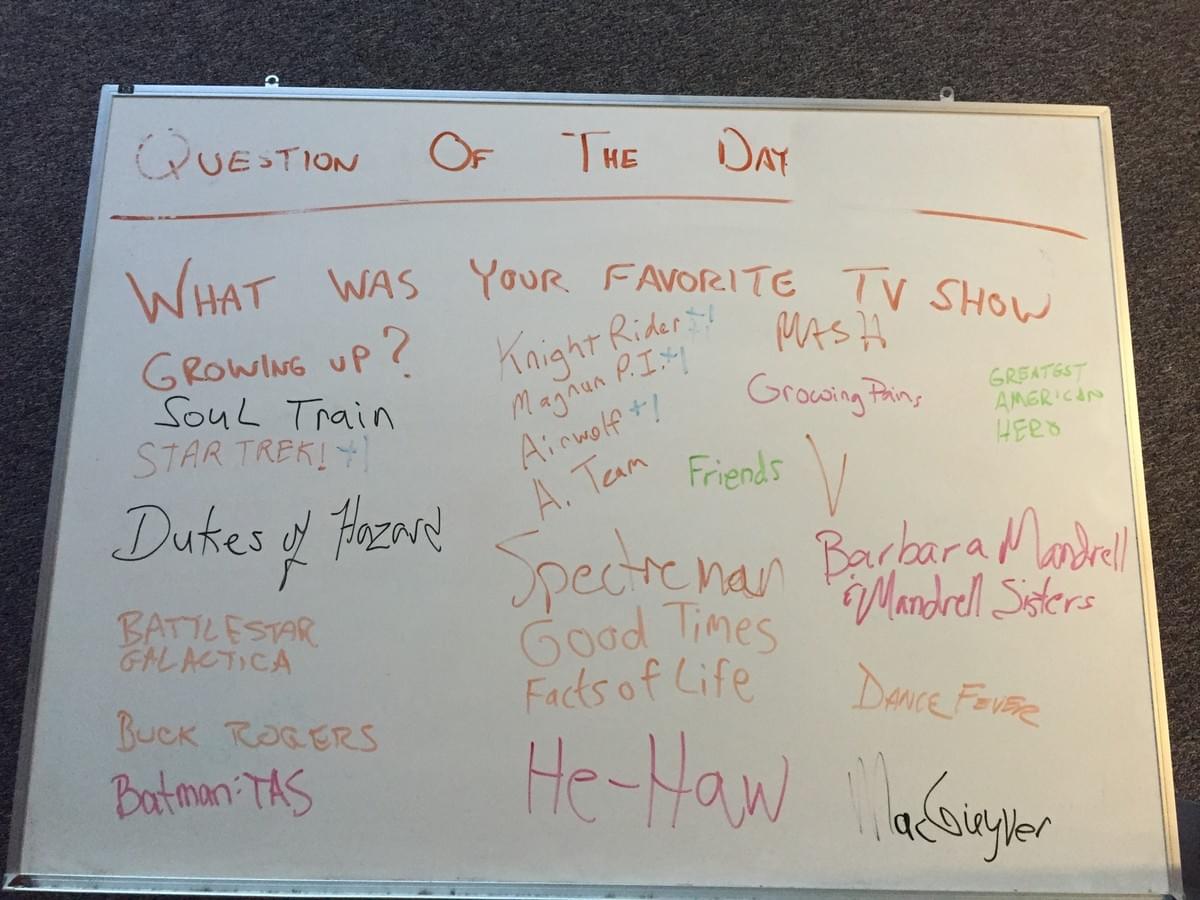 QUESTION OF THE DAY
WHAT WAS YOUR FAVORITE TV SHOW
GROWING UP?
Soul Train
STAR TREK! +1
Dukes of Hazard
BATTLESTAR
GALACTICA
BUCK ROGERS
Batman:TAS
Knight Rider +1
Magnum P.I. +1
Airwolf +1
A. Team
Friends
Spectreman
Good Times
Facts of Life
He-Haw
MASH
Growing Pains
GREATEST
AMERICAN
HERO
V
Barbara Mandrell
& Mandrell Sisters
DANCE FEVER
MacGuyver